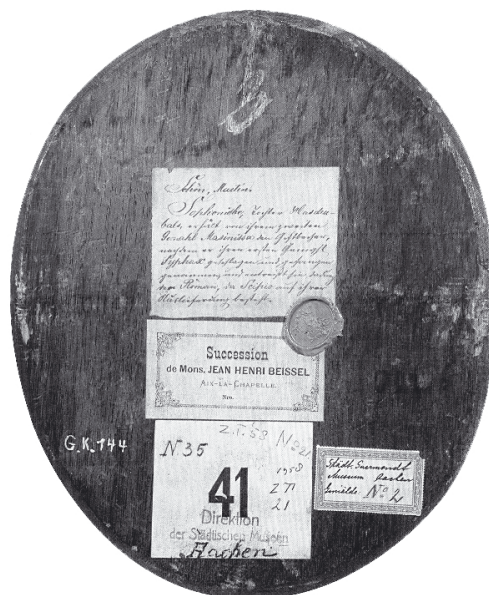 Schön, Martin.
Sophonisbe, Tochter Hasdru-
bals, erhält von ihrem zweiten
Gemahl Masinissa den Giftbecher,
nachdem er ihren ersten Gemahl
Syphax geschlagen und gefangen
genommen und entreißt sie dadurch
den Römern, da Scipio auf ihrer
Auslieferung besteht.
Succession
de Mons. JEAN HENRI BEISSEL
AIX-LA-CHAPELLE.
Nro.
G.K. 144
N 35
41
1958
21
Direktion
der Städtischen Museen
Aachen
Städt. Suermondt
Museum Aachen
Gemälde No 2